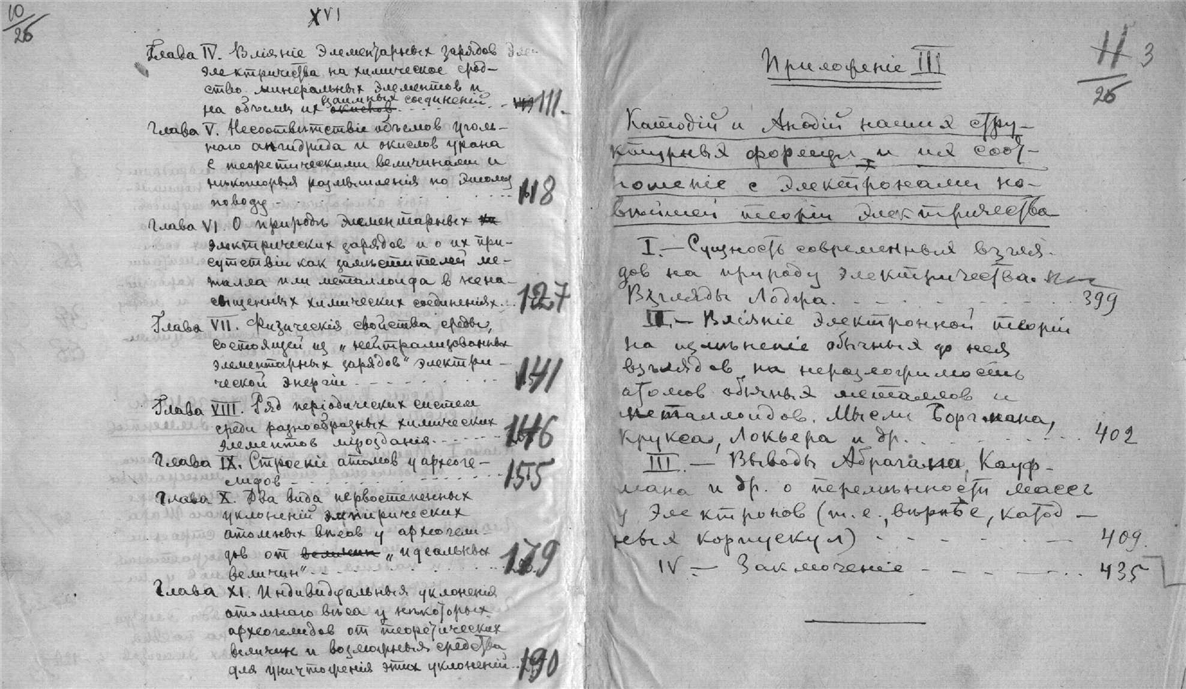 10/26
XVI
Глава IV. Вліяніе элементарныхъ зарядовъ
электричества на химическое срод-
ство минеральныхъ элементовъ и
на объемы ихъ взаимныхъ соединеній 111.
Глава V. Несоотвѣтствіе объемовъ уголь-
наго ангидрида и окисловъ урана
съ теоретическими величинами и
нѣкоторыя размышленія по этому
поводу 118
Глава VI. О природѣ элементарныхъ
электрическихъ зарядовъ и о ихъ при-
сутствіи какъ замѣстителей ме-
талла или металлоида въ нена-
сыщенныхъ химическихъ соединеніяхъ 127
Глава VII. Физическія свойства среды,
состоящей изъ „нейтрализованныхъ
элементарныхъ зарядовъ" электри-
ческой энергіи 141
Глава VIII. Рядъ періодическихъ системъ
среди разнообразныхъ химическихъ
элементовъ мірозданія 146
Глава IX. Строеніе атомовъ у археоге-
лидовъ 155
Глава X. Два вида первостепенныхъ
уклоненій эмпирическихъ
атомныхъ вѣсовъ у археогели-
довъ отъ „идеальныхъ
величинъ" 179
Глава XI. Индивидуальныя уклоненія
атомнаго вѣса у нѣкоторыхъ
археогелидовъ отъ теоретическихъ
величинъ и возможныя средства
для уничтоженія этихъ уклоненій 190
11/26 3
Приложеніе III
Катодій и Анодій нашихъ стру-
ктурныхъ формулъ и ихъ соот-
ношеніе съ электронами но-
вѣйшей теоріи электричества
I.— Сущность современныхъ взгля-
довъ на природу электричества.
Взгляды Лоджа. 399
II.— Вліяніе электронной теоріи
на измѣненіе обычныхъ до нея
взглядовъ на неразложимость
атомовъ обычныхъ металловъ и
металлоидовъ. Мысли Боргмана,
Крукса, Локьера и др. 402
III.— Выводы Абрагама, Кауф-
мана и др. о перемѣнности массъ
у электроновъ (т.е., вѣрнѣе, катод-
ныхъ корпускул) 409.
IV — Заключеніе 435